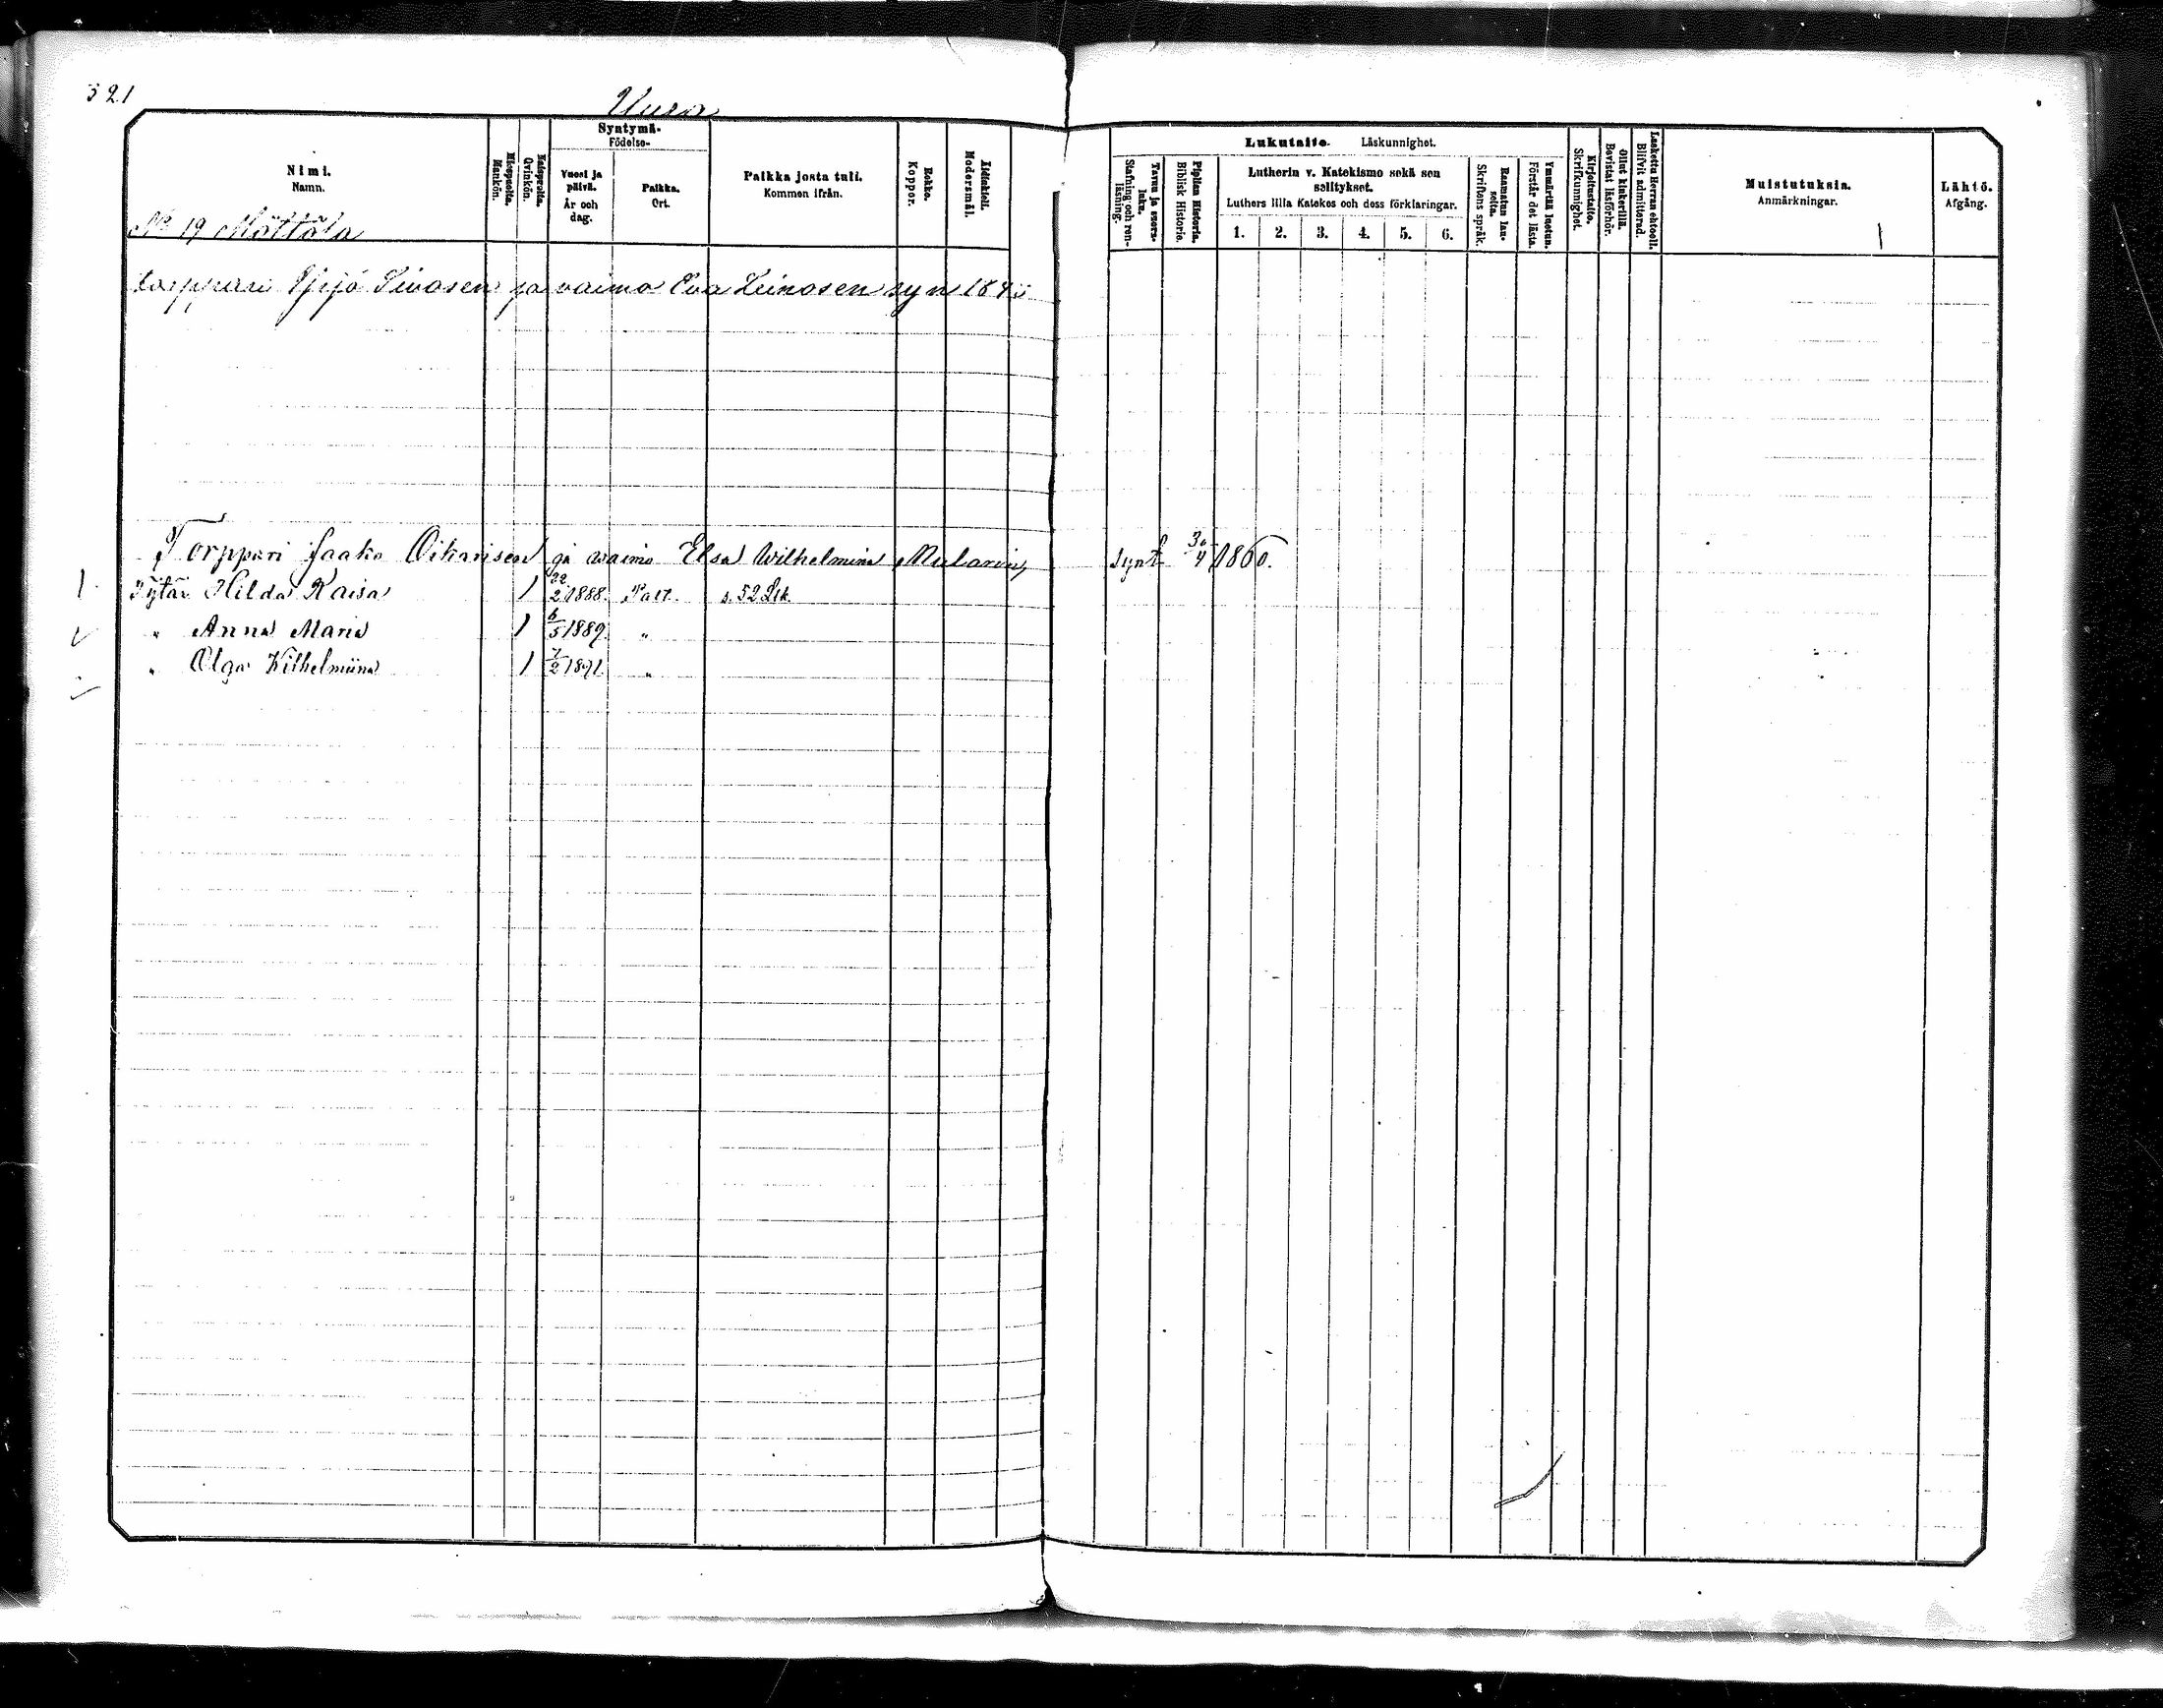 321
Uura
Nimi.
Namn.
Miespuolia.
Mankön.
Naispuolia.
Qvinkön.
Syntymä-
Födelse-
Vuosi ja päivä.
År och dag.
Paikka.
Ort.
Paikka josta tuli.
Kommen ifrån.
Rokko.
Koppor.
Äidinkieli.
Modersmål.
Lukutaito. Läskunnighet.
Tavuu ja suora-luku.
Stafning och ren-läsning.
Piplian Historia.
Biblisk Historie.
Lutherin v. Katekismo sekä sen
selitykset.
Luthers lilla Katekes och dess förklaringar.
1. 2. 3. 4. 5. 6.
Raamatun lau-seita.
Skriftens språk.
Ymmärtää luetun.
Förstår det lästa.
Kirjoitustaito.
Skrifkunnighet.
Ollut kinkerillä.
Bevistat läsförhör.
Laskettu Herran ehtooll.
Blifvit admitterad.
Muistutuksia.
Anmärkningar.
Lähtö.
Afgång.
No 19 Möttölä
torppari Yrjö Sivosen ja vaimo Eva Leinosen syn 1845
Torppari Jaako Oikarisen ja waimo Elsa Wilhelmina Mularin, synt 30/4 1860.
Tytär Hilda Kaisa 1 22/2 1888. Palt. s. 52 Ltk.
" Anna Maria 1 6/5 1889. "
" Olga Wilhelmiina 1 7/2 1891. "